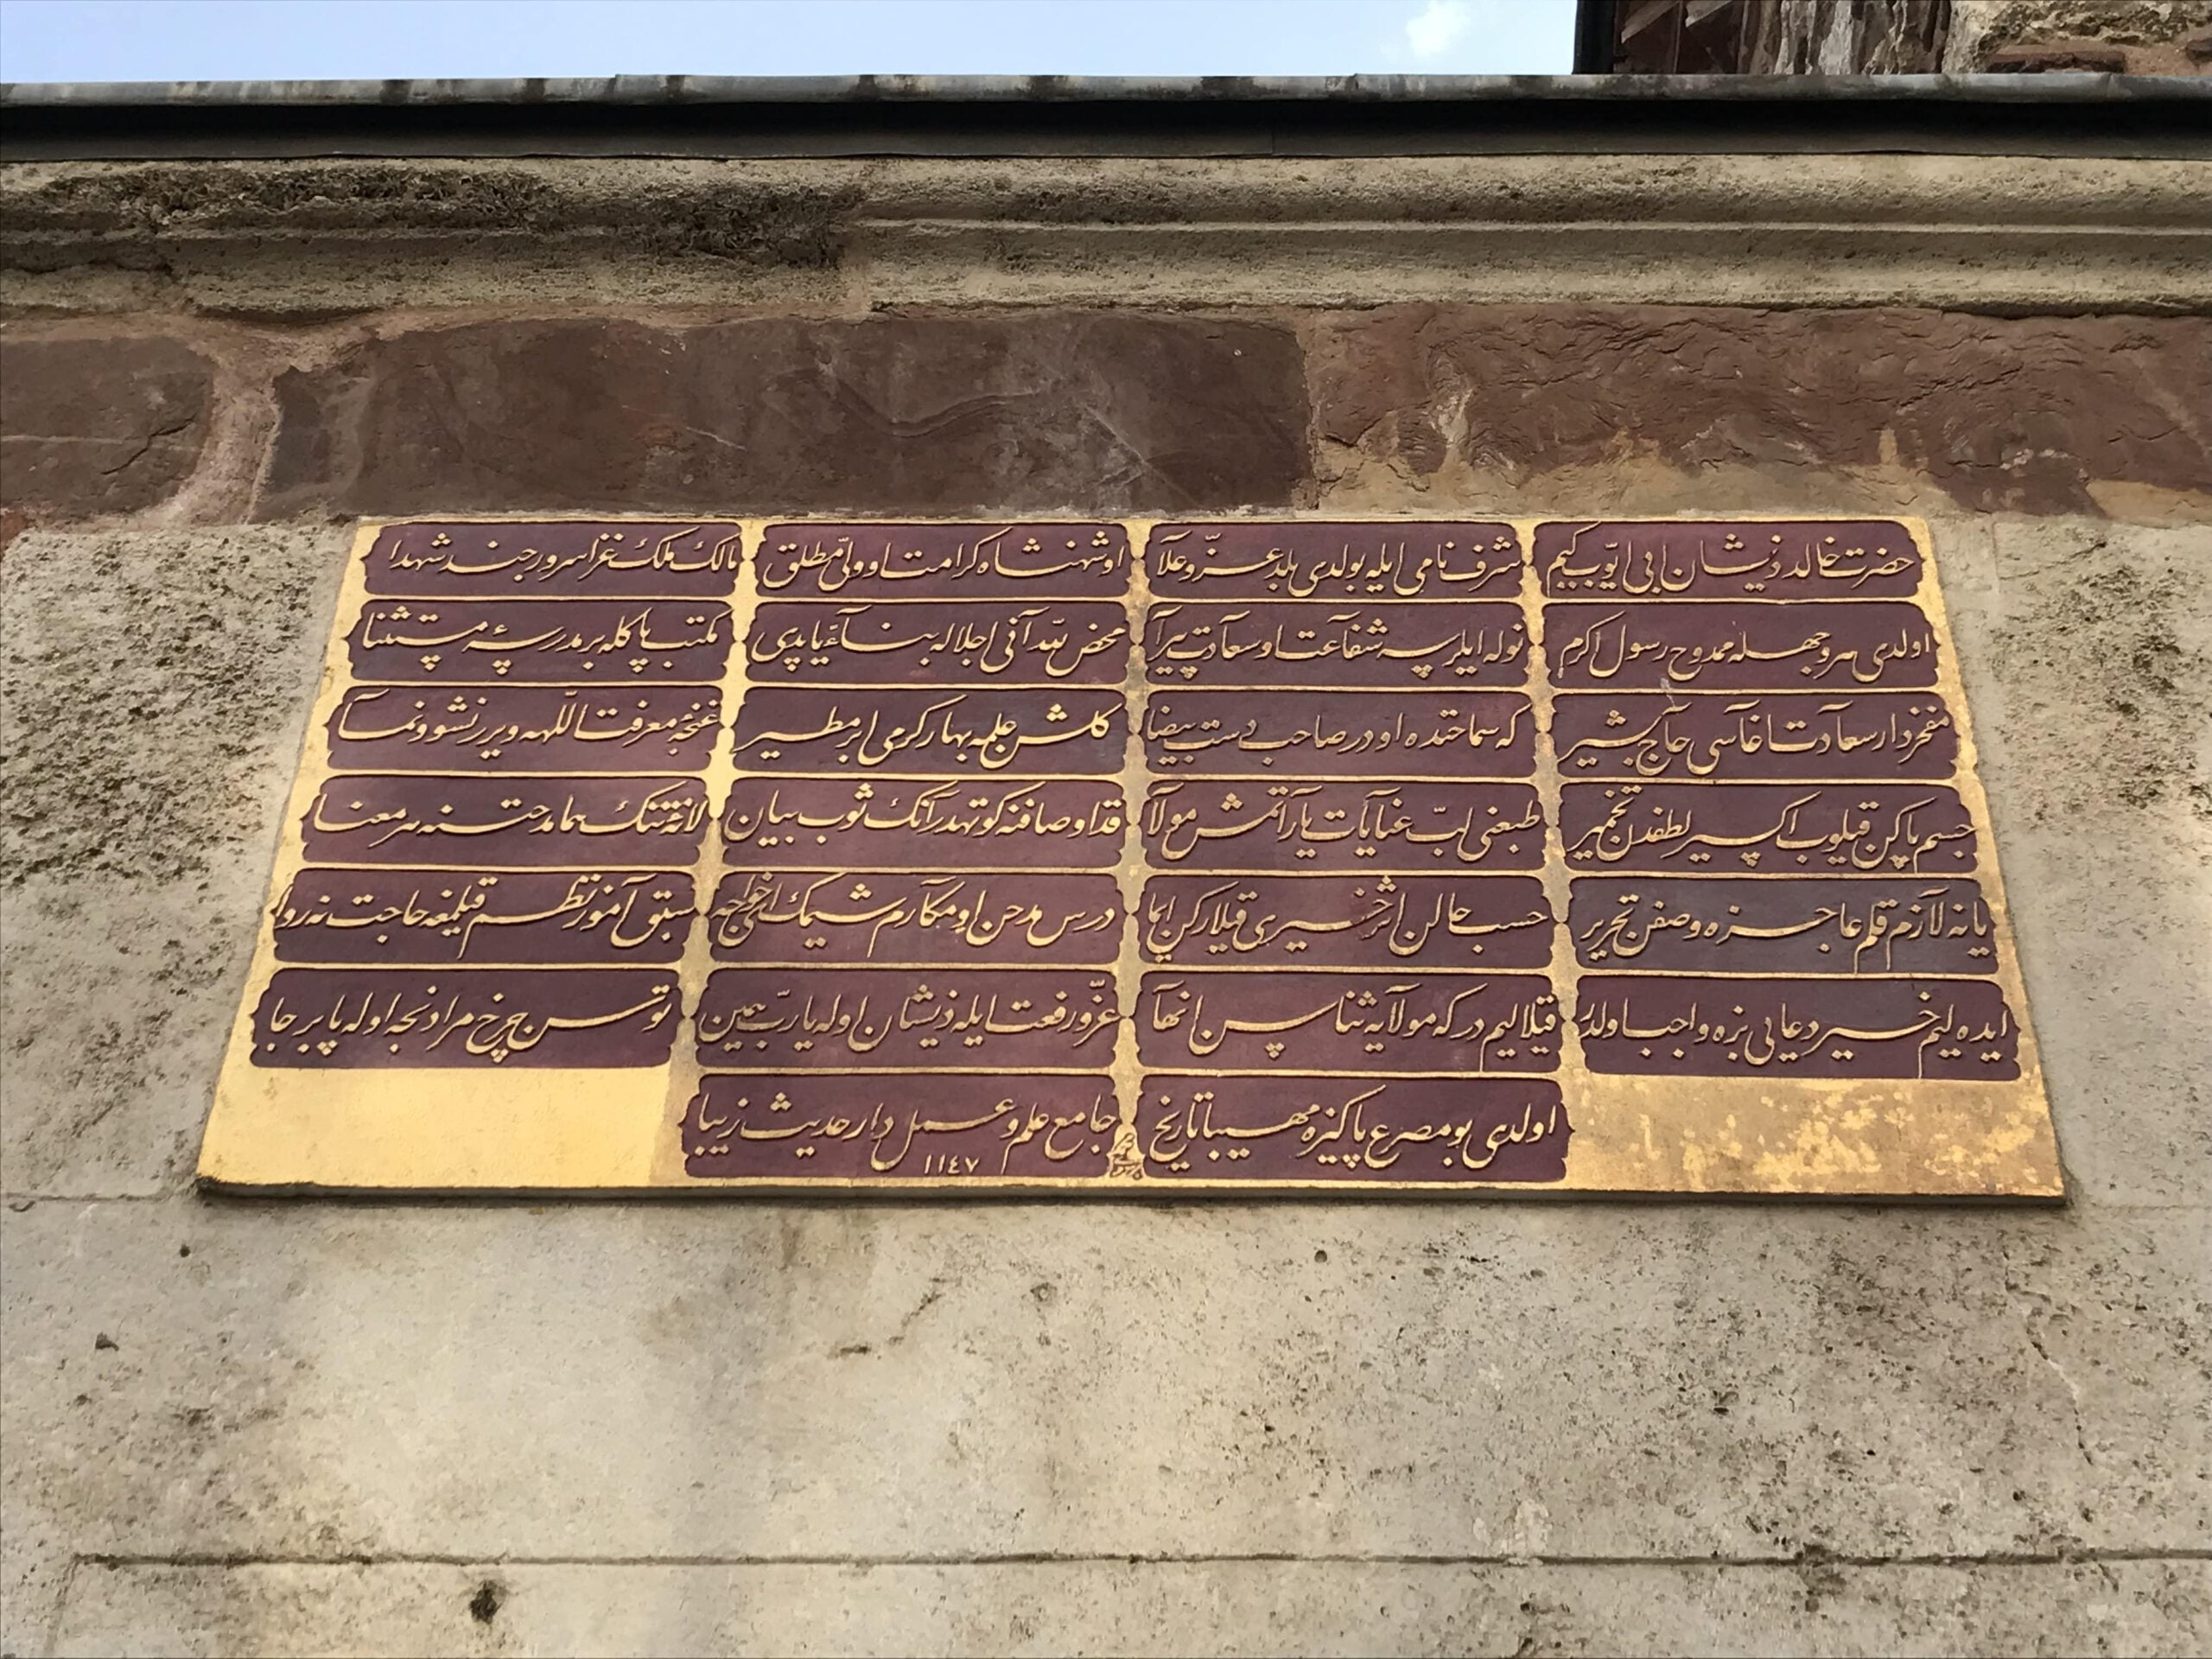 حضرت خالد ذیشان ابی ایّوب کیم شرف نامی ایله بولدی بلد عزّ و علا اوشهنشاه کرامت او ولیّ مطلق مالک ملک غزا سرور جند شهدا
اولدی هر وجهله ممدوح رسول اکرم نوله ایلرسه شفاعت او سعادت پیرا محض للّه آنی اجلاله بناء یاپدی مکتب پاکله بر مدرسهٔ مستثنا
مفخر دار سعادت اغاسی حاج بشیر که سماحتده اودر صاحب دست بیضا گلشن علمه بهار کرمی ابر مطیر غنچهٔ معرفت اللّهه ویرر نشو و نما
جسم پاکن قیلوب اکسیر لطفدن تخمیر طبعنی لبّ عنایات یاراتمش مولا قد اوصافنه کوتهدر آنک ثوب بیان لائقنک همامدحتنه سر معنا
یا نه لازم قلم عاجزه وصفن تحریر حسب حالن اثر خیری قیلارکن ایما درس مدحن او مکارم شیمک ای خواجه سبق آموز نظم قیلمغه حاجت نه روا
ایده لیم خیر دعایی بزه واجب اولدر قیلالیم درکه مولایه ثناسن انها عزّ و رفعت ایله ذیشان اوله یا ربّ همین توسن چرخ مرادنجه اوله پا بر جا
اولدی بو مصرع پاکیزه مهیبا تاریخ جامع علم و عمل دار حدیث زیبا
١١٤٧